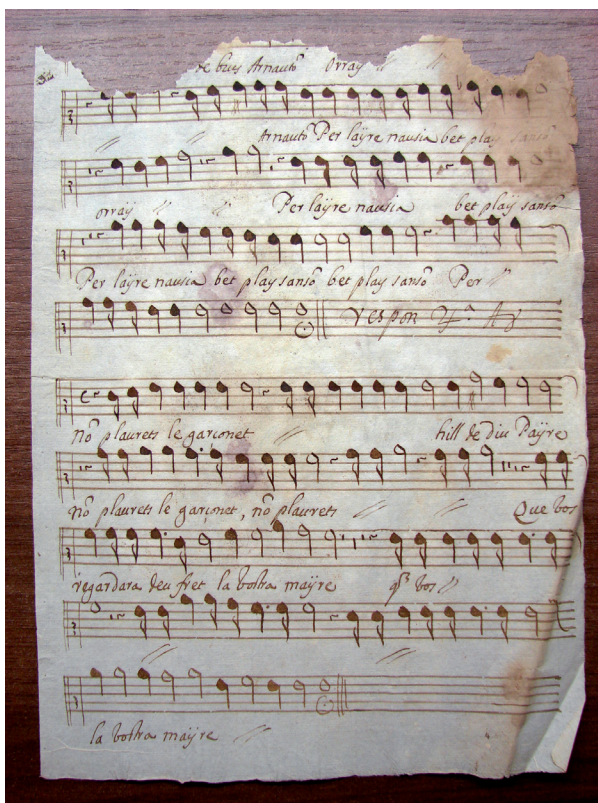 de bus Arnautõ Orray
Arnautõ Per laÿre nausia bet play sansõ
orray Per laÿre nausia bet play sansõ
Per laÿre nausia bet play sansõ bet play sansõ Per
respon
nõ plaurets le garçonet hill de diu Paÿre
nõ plaurets le garçonet, nõ plaurets Que bos
regardara deu fret la bostra maÿre q̃ bos
la bostra maÿre